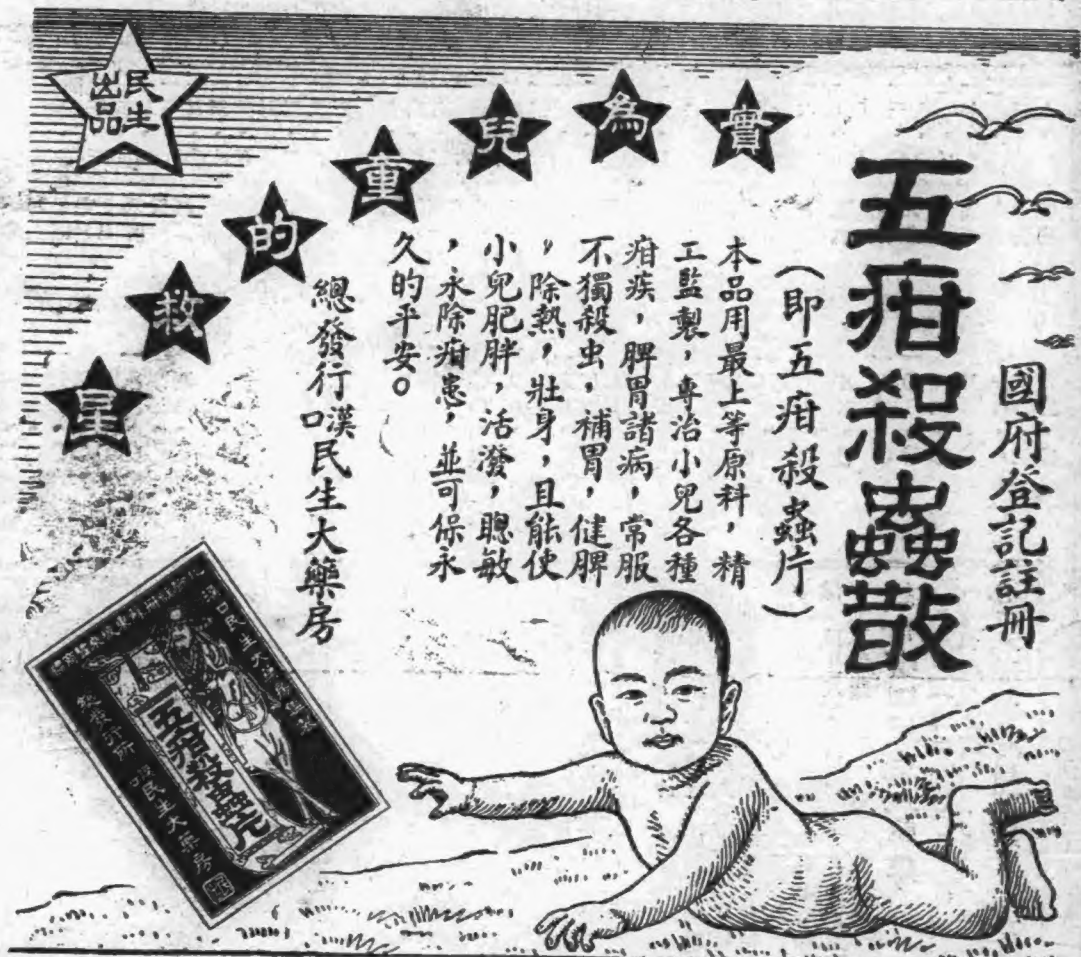 國府登記註冊
五疳殺蟲散
(即五疳殺蟲片)
本品用最上等原料，精
工監製，專治小兒各種
疳疾，脾胃諸病，常服
不獨殺虫，補胃，健脾
，除熱，壯身，且能使
小兒肥胖，活潑，聰敏
，永除疳患，並可保永
久的平安。
總發行漢口民生大藥房
實為兒童的救星
民生出品
五疳殺蟲片
總發行所 漢口民生大藥房